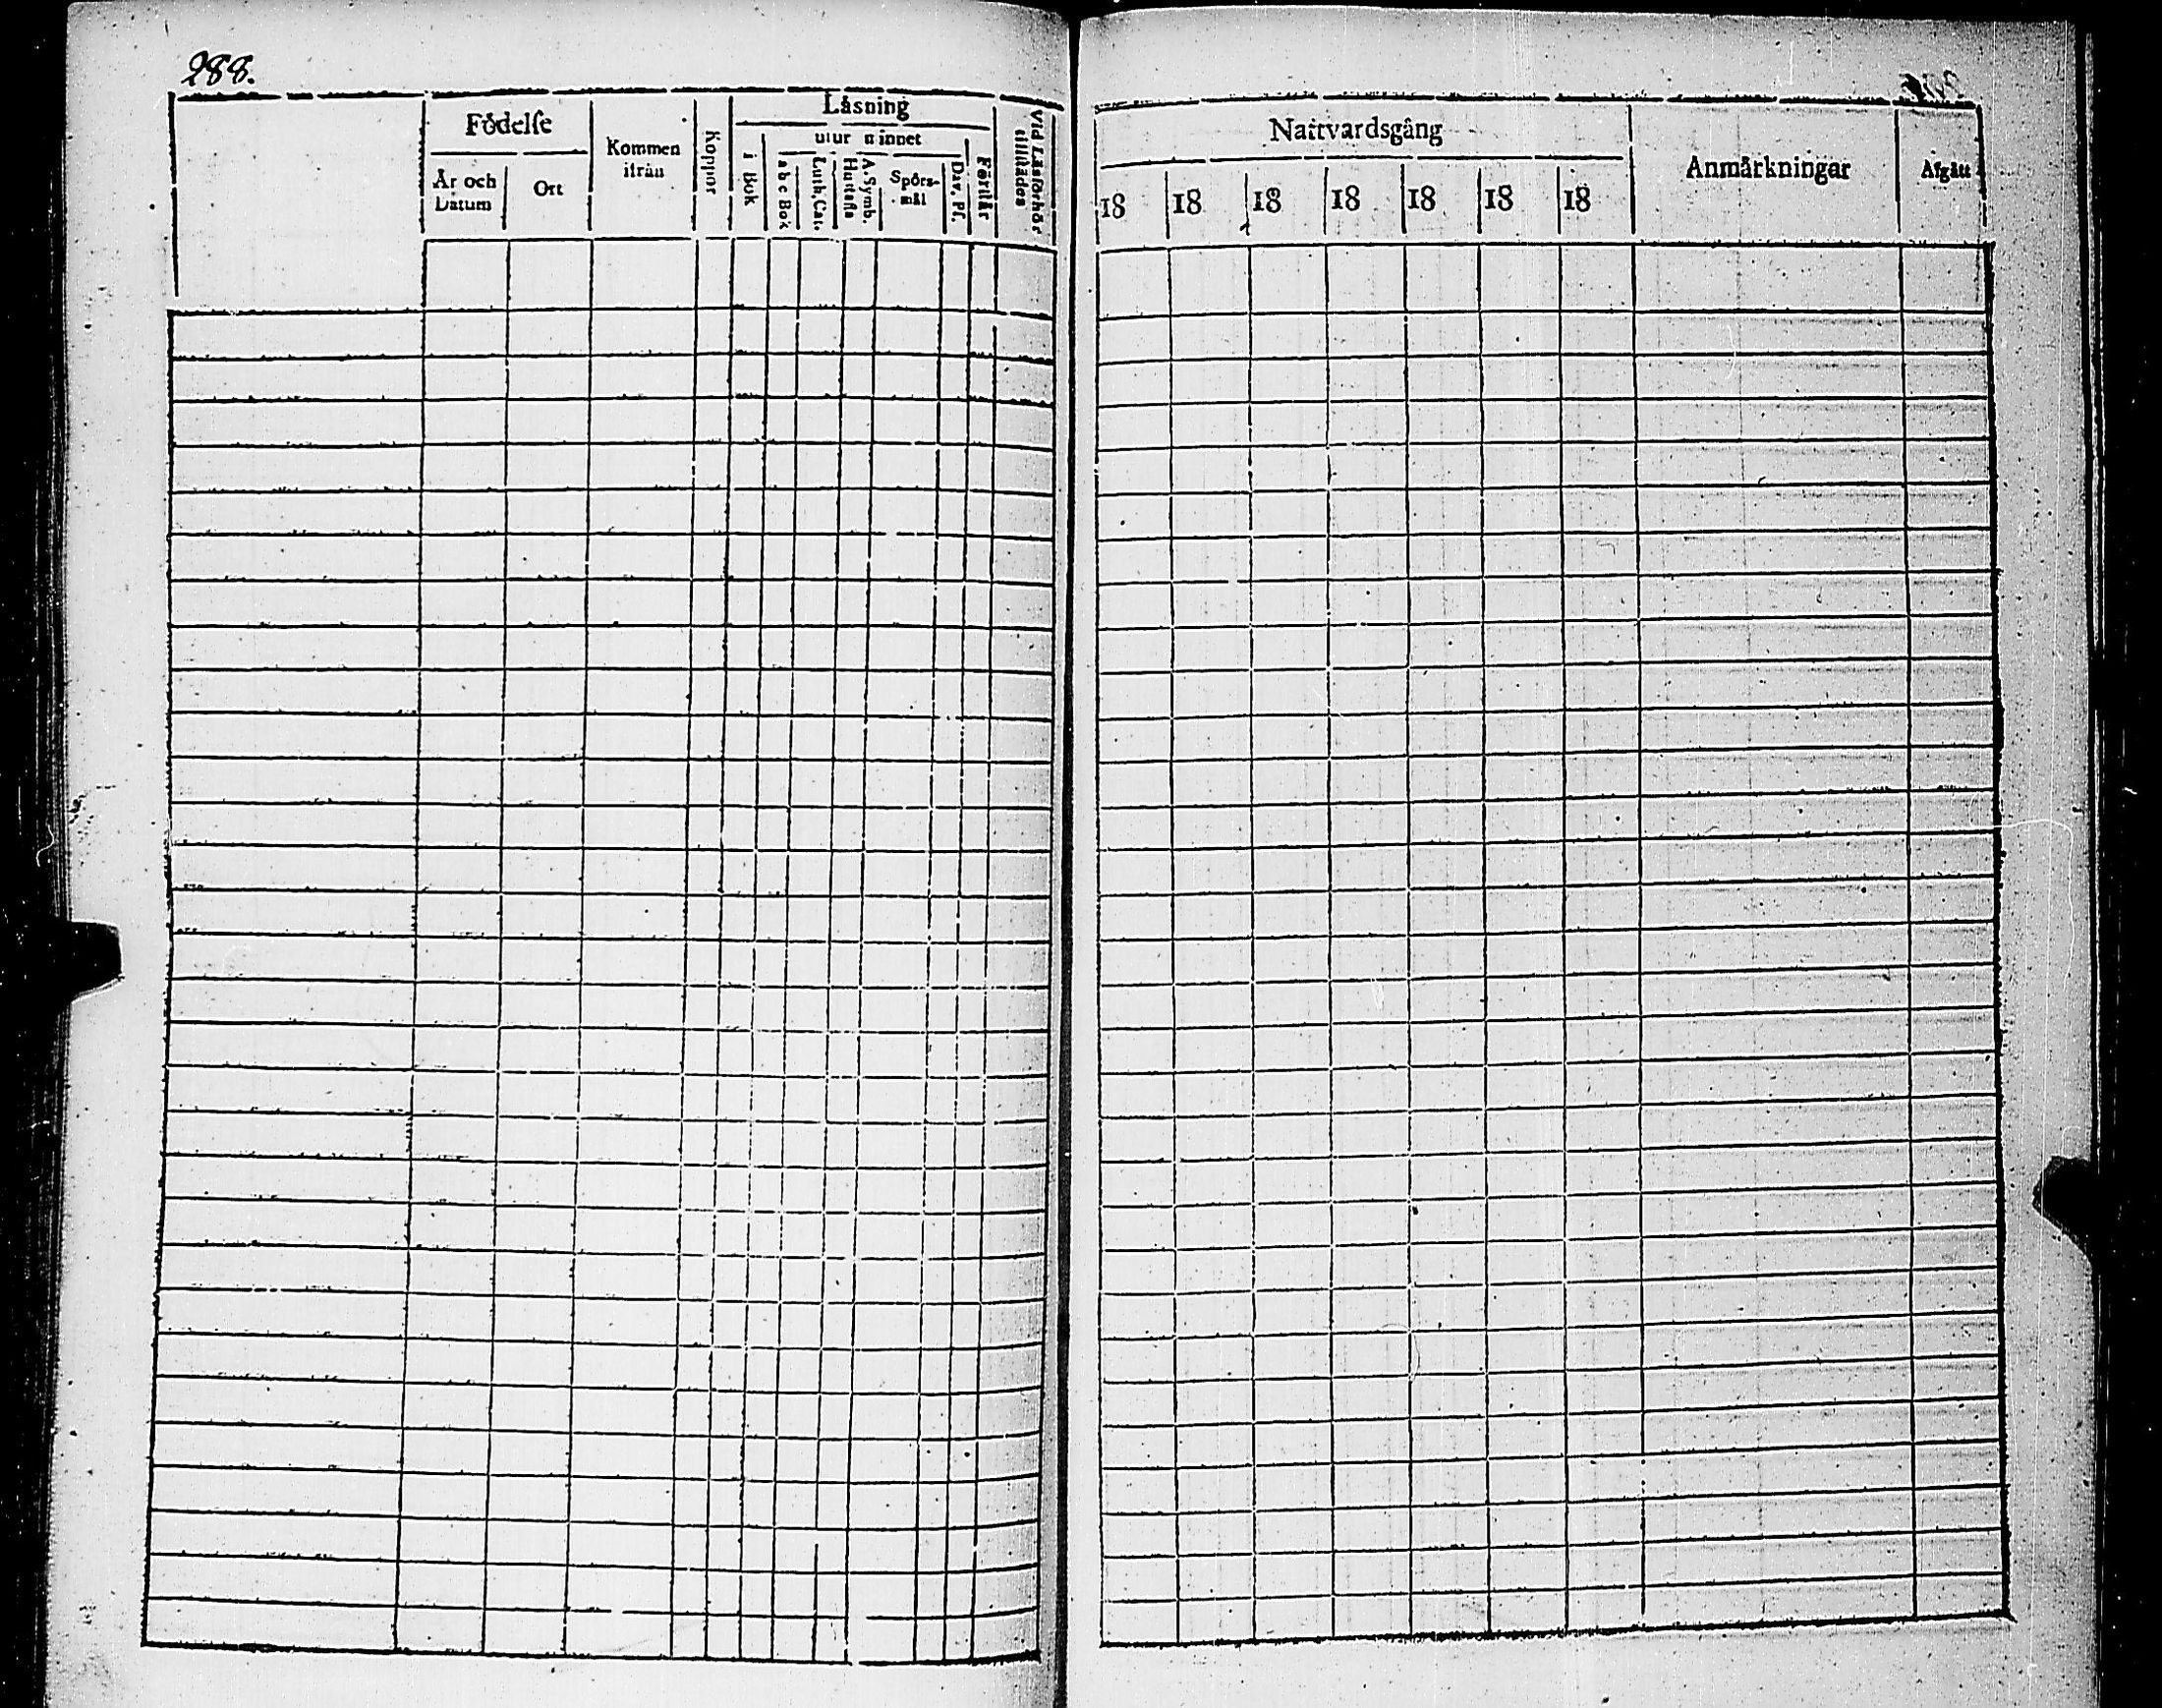 288.
Födelſe
År och
Datum
Ort
Kommen
ifrån
Koppor
Läsning
i Bok
utur minnet
a b c Bok
Luth. Cat.
Huſtafla
A. Symb.
Spörs-
mål
Dav. Pſ.
Förſtår
Vid Läsförhör
tillſtädes
Nattvardsgång
18 18 18 18 18 18 18
Anmärkningar
Afgått